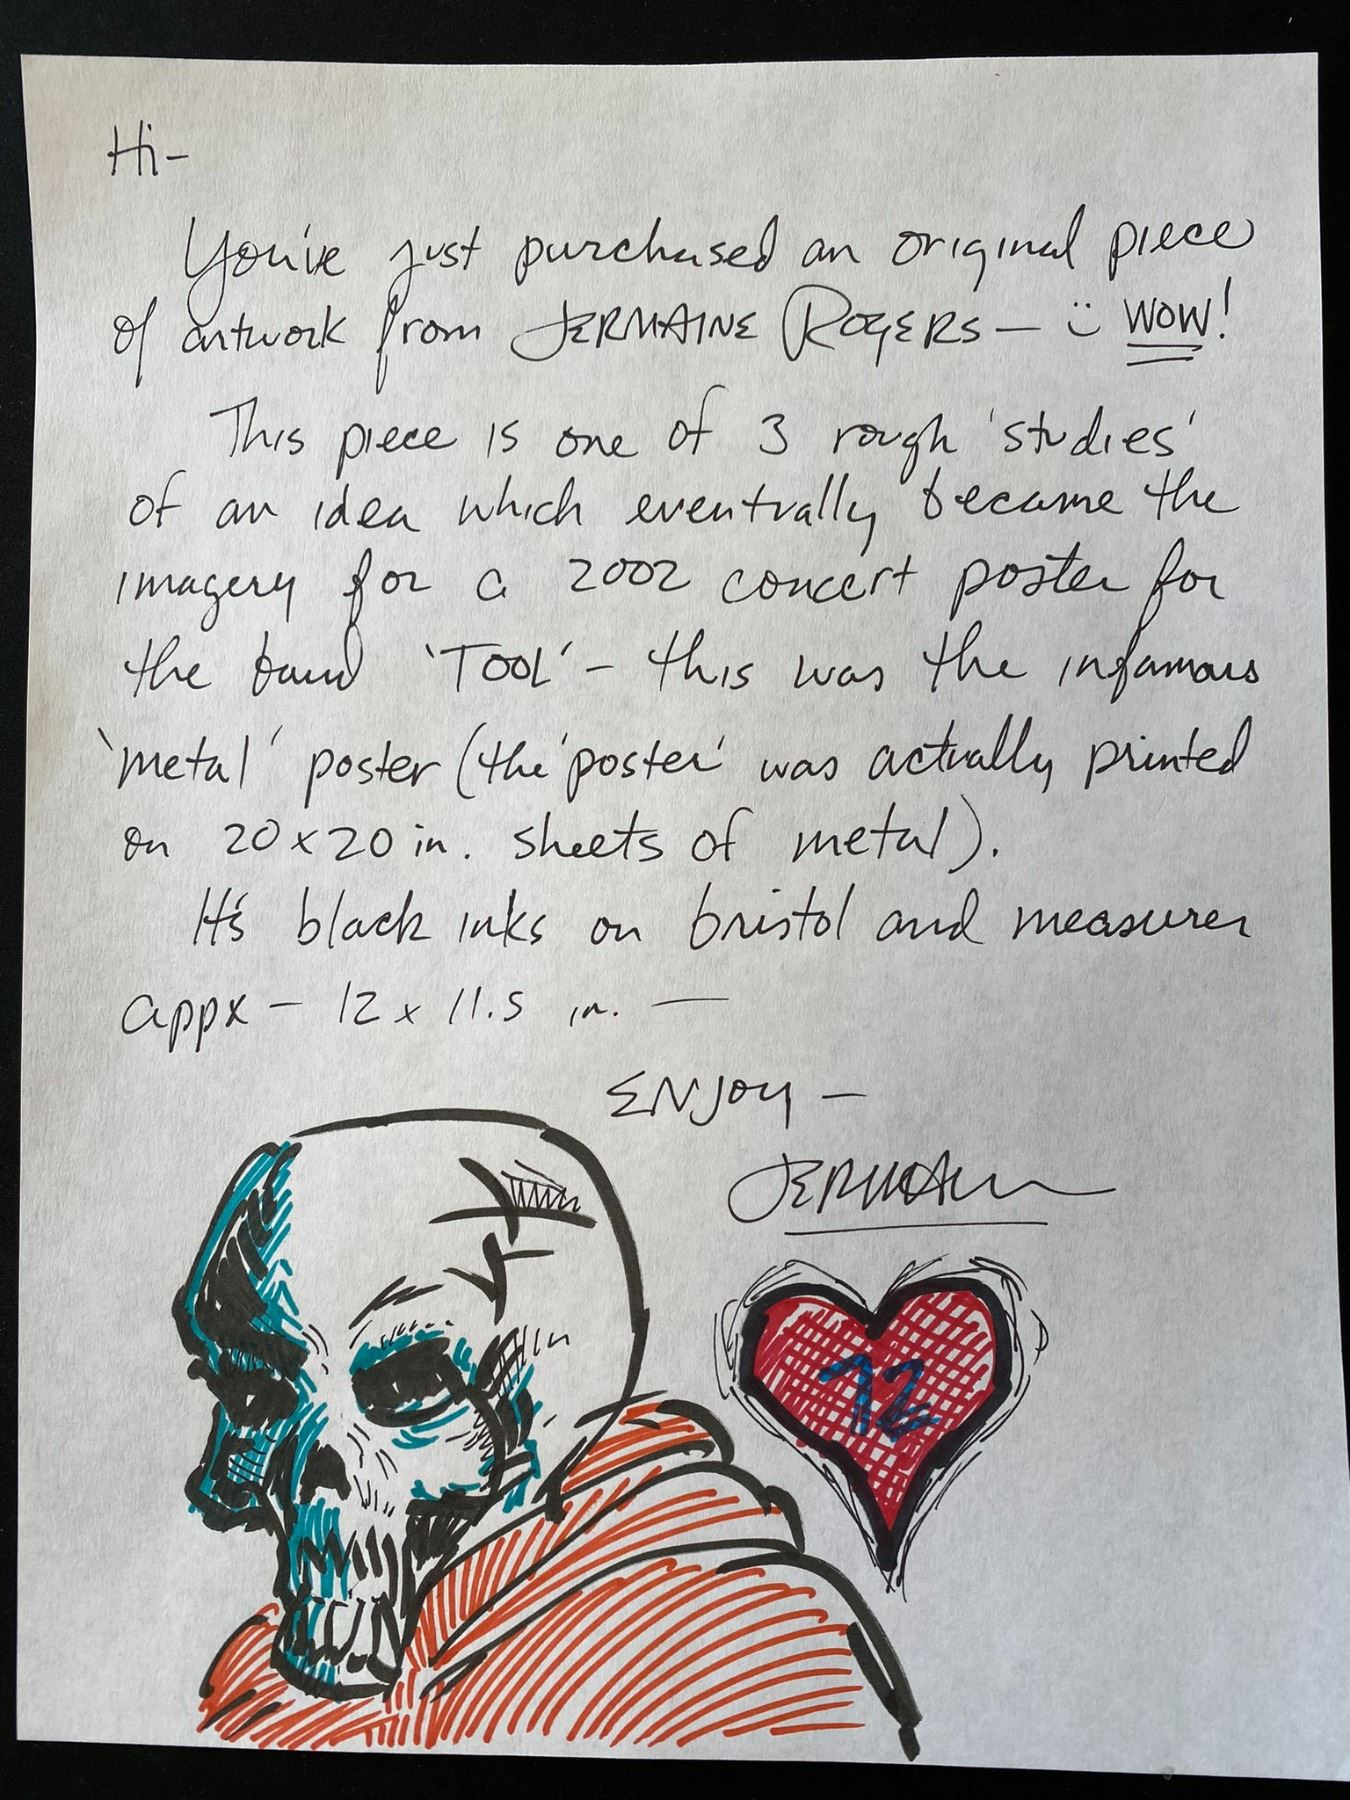 Hi-
You've just purchased an original piece
of artwork from JERMAINE ROGERS — :) WOW!
This piece is one of 3 rough 'studies'
of an idea which eventually became the
imagery for a 2002 concert poster for
the band 'TOOL' - this was the infamous
'metal' poster (the 'poster' was actually printed
on 20x20 in. sheets of metal).
It's black inks on bristol and measures
appx - 12 x 11.5 in. —
ENJOY -
JERMAINE
72